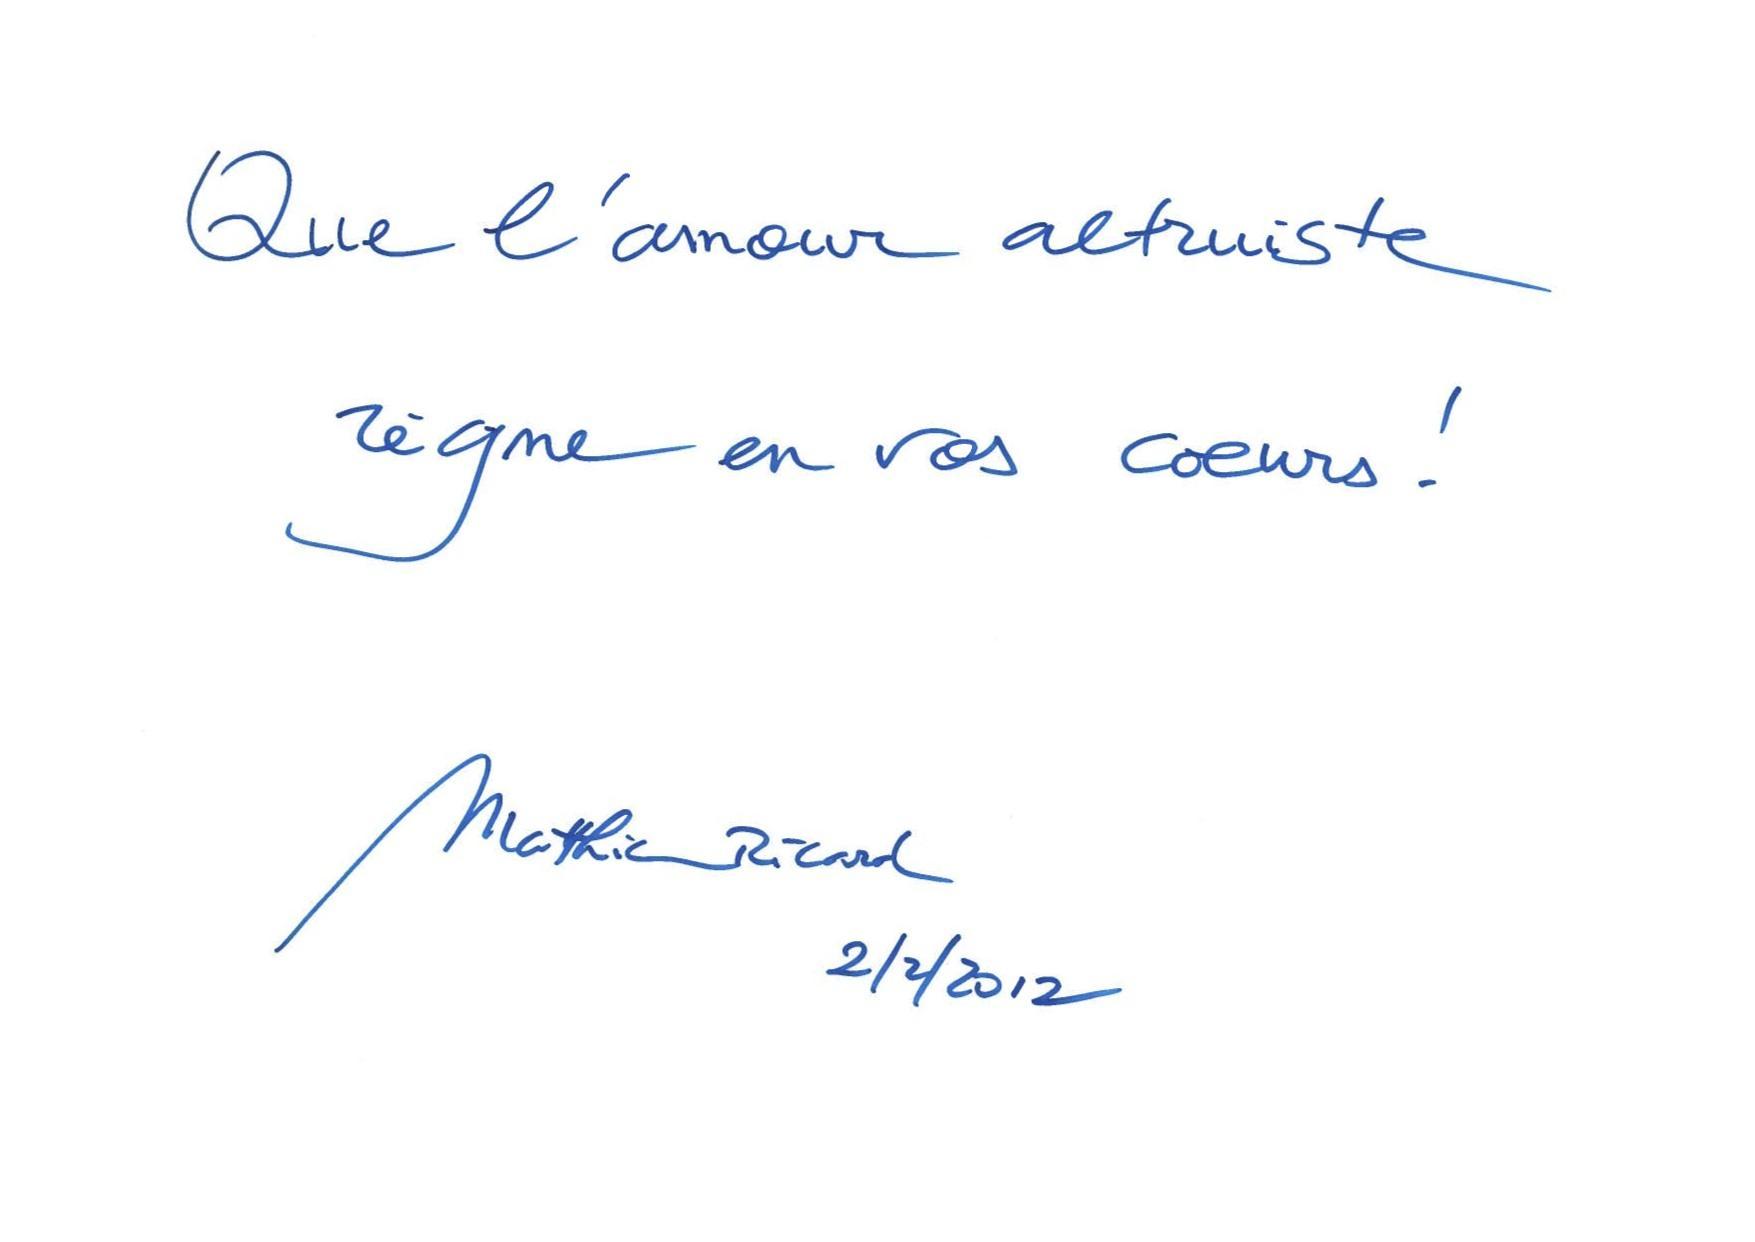 Que l'amour altruiste
règne en vos coeurs !
Matthieu Ricard
2/2/2012